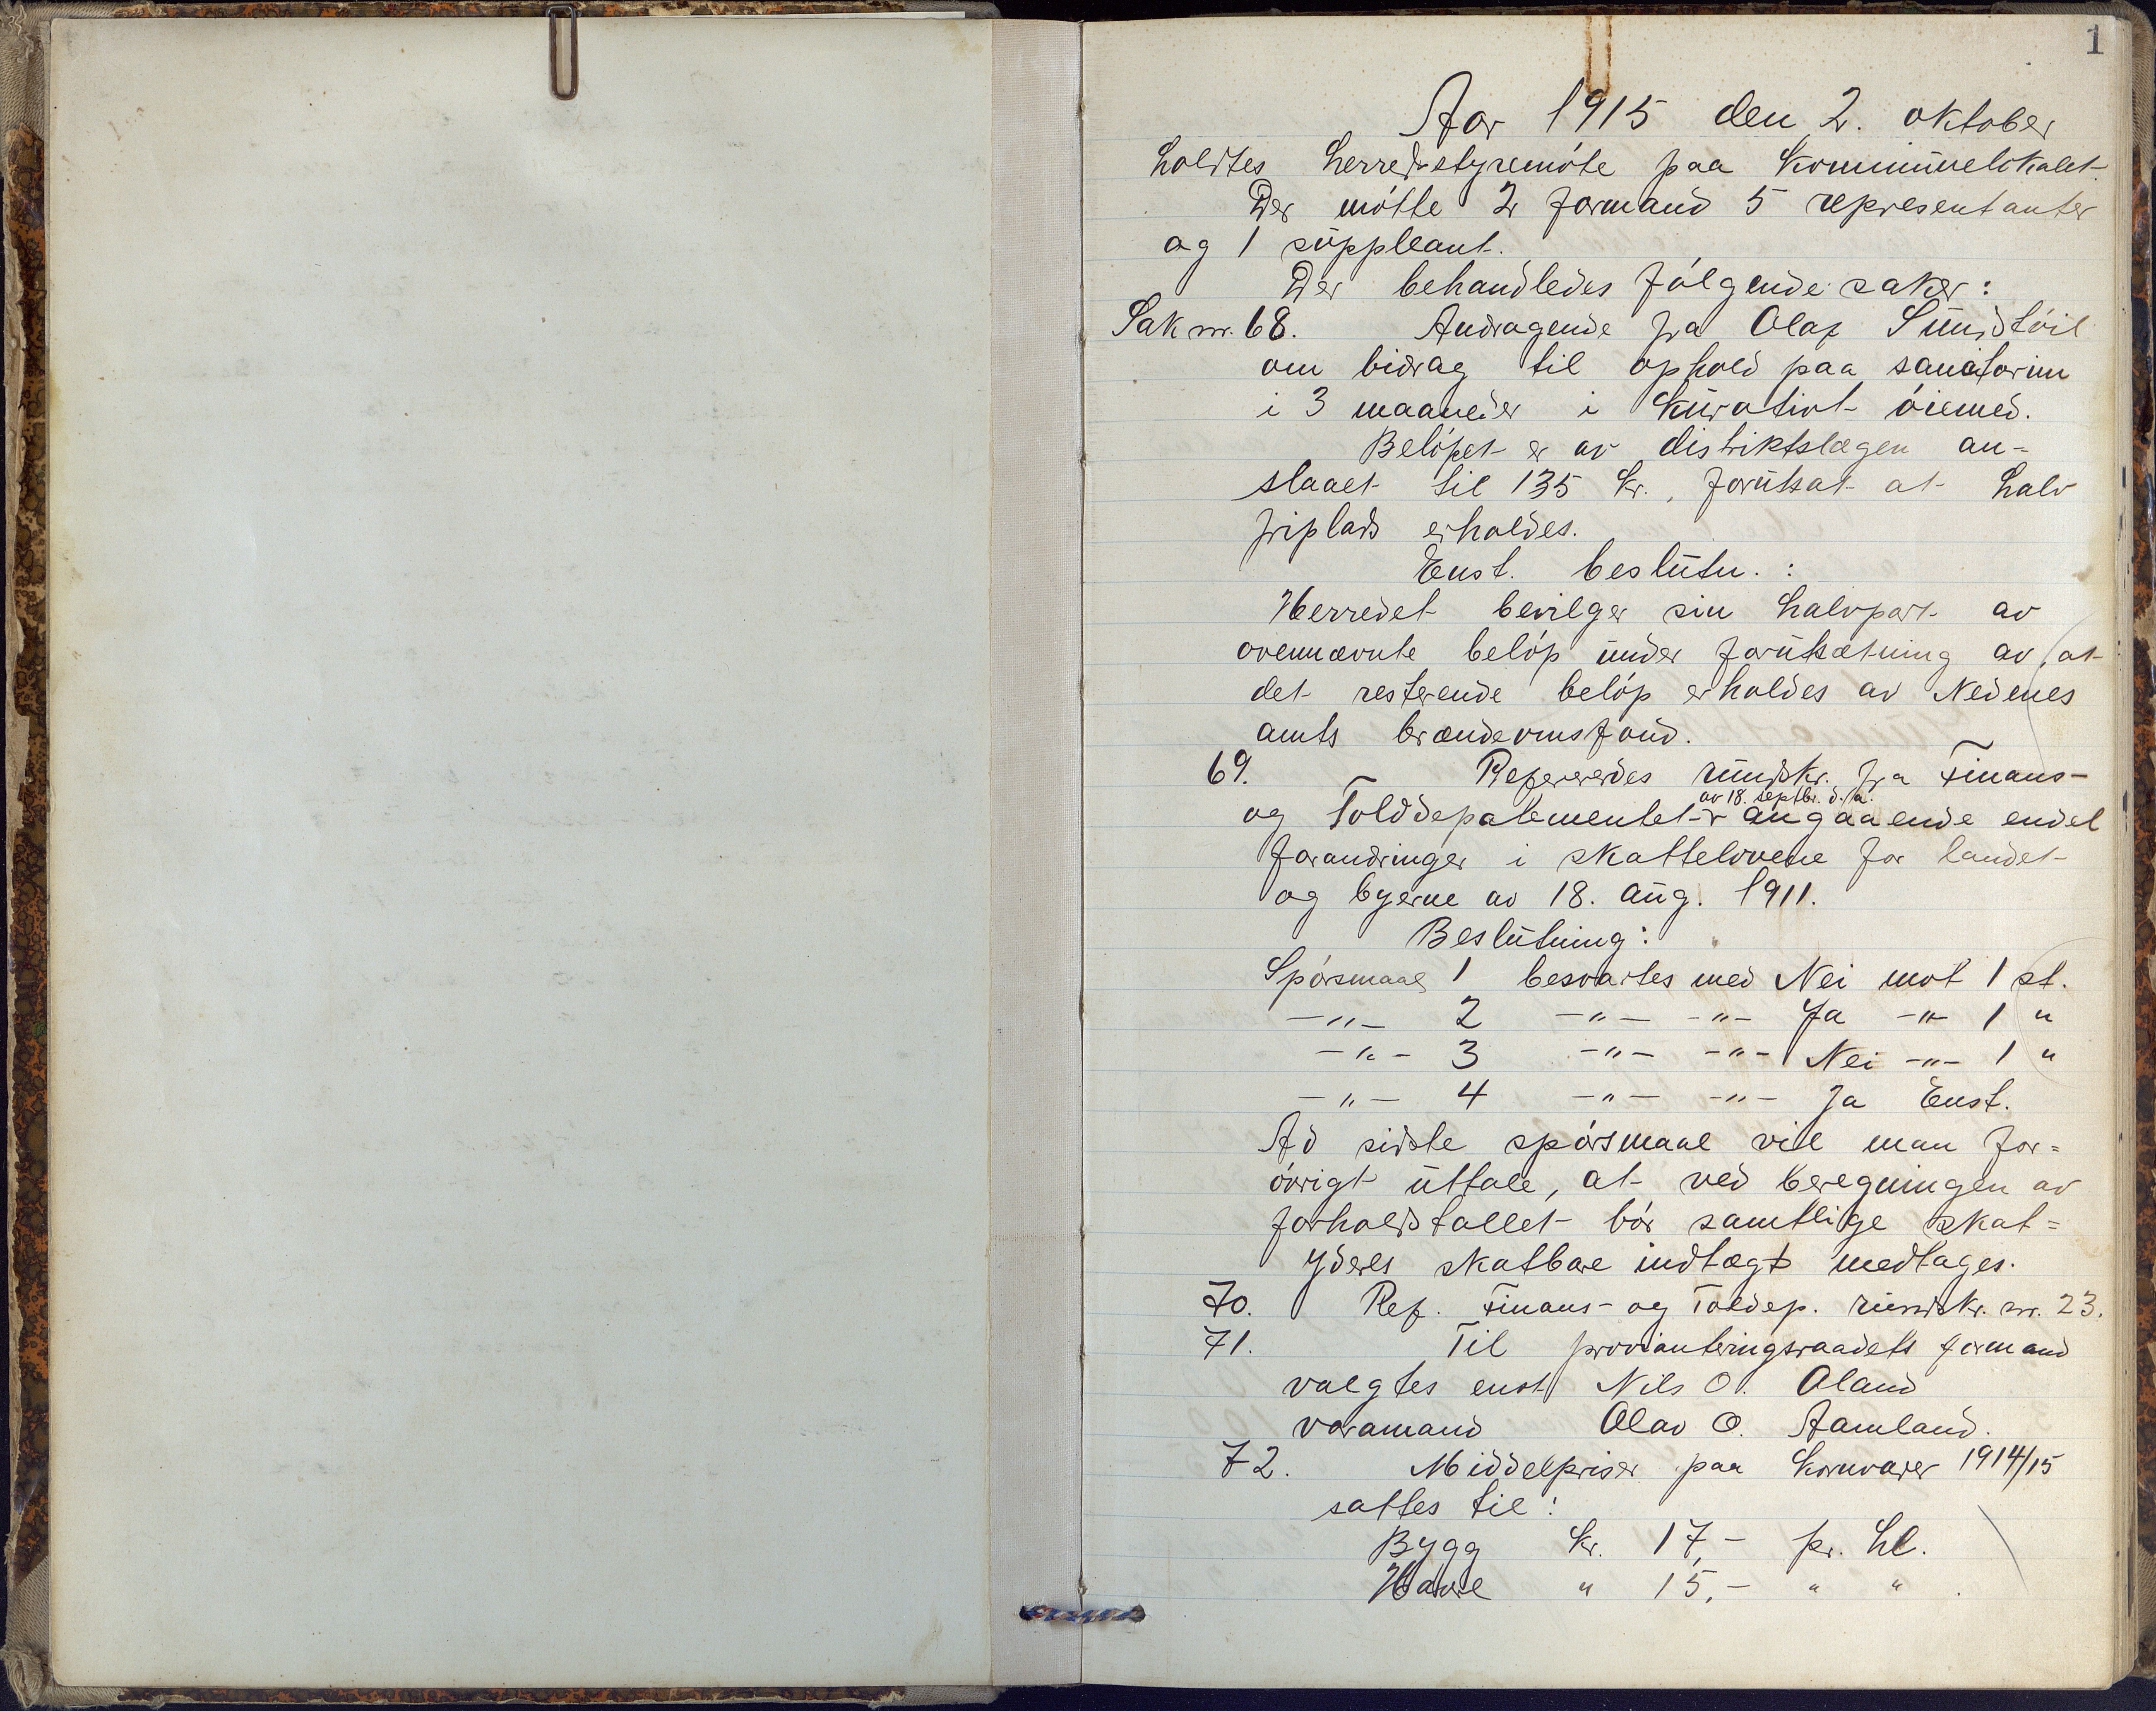 1
Aar 1915 den 2. oktober
holdtes herredsstyremöte paa kommunelokalet.
Der mötte 2 formænd 5 representanter
og 1 suppleant.
Der behandledes fölgende saker:
Sak nr. 68. Andragende fra Olaf Sundtöil
om bidrag til ophold paa sanatorium
i 3 maaneder i kurativt öiemed.
Belöpet er av distriktslægen an=
slaaet til 135 kr., forutsat at halv
friplads erholdes.
Enst. beslutn.:
Herredet bevilger sin halvpart av
ovennævnte belöp under forutsætning av, at
det resterende belöp erholdes av Nedenes
amts brændevinsfond.
69. Refereredes rundskr. fra Finans-
av 18. septbr. d. a.
og Tolddepatementet angaaende endel
forandringer i skattelovene for landet
og byerne av 18. aug. 1911.
Beslutning:
Spörsmaal 1 besvartes med Nei mot 1 st.
-"- 2 -"- -"- Ja -"- 1 "
-"- 3 -"- -"- Nei -"- 1 "
-"- 4 -"- -"- Ja Enst.
Ad sidste spörsmaal vil man for=
övrigt uttale, at ved beregningen av
forholdstallet bör samtlige skat=
yderes skatbare indtægt medtages.
70. Ref. Finans- og Toldep. rundskr. nr. 23.
71. Til provianteringsraadets formand
valgtes enst Nils O. Oland
varamand Olav O. Aamland.
72. Middelpriser paa kornvarer 1914/15
sattes til:
Bygg kr. 17,- pr. hl.
Havre " 15,- " "